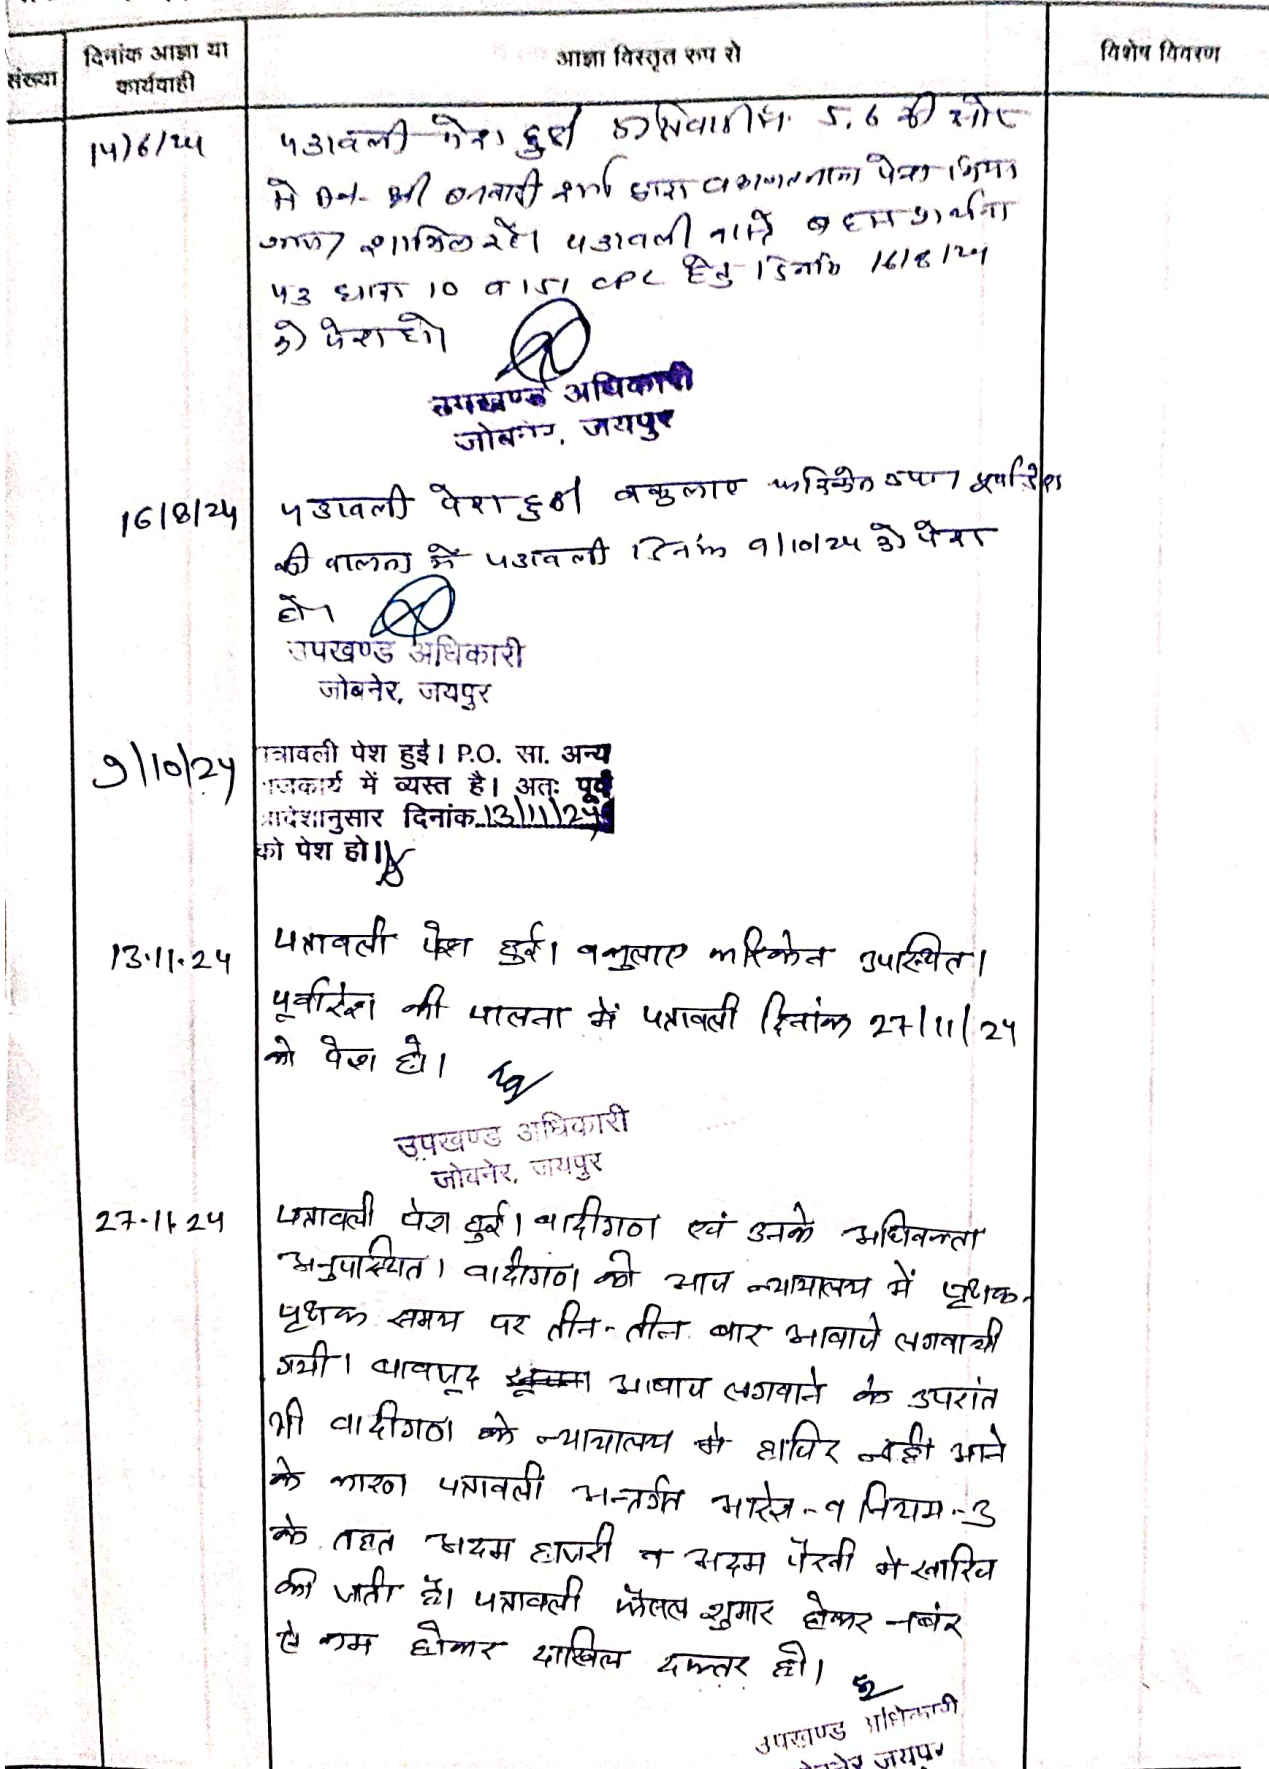 संख्या
दिनांक आज्ञा या
कार्यवाही
आज्ञा विस्तृत रूप से
विशेष विवरण
14/6/24
पत्रावली पेश हुई। प्रतिवादी सं. 5, 6 की ओर
से श्री बनवारी शर्मा द्वारा वकालतनामा पेश किया
शामिल रहे। पत्रावली वास्ते बहस प्रार्थना
पत्र धारा 10 व 151 CPC हेतु दिनांक 16/8/24
को पेश हो।
उपखण्ड अधिकारी
जोबनेर, जयपुर
16/8/24
पत्रावली पेश हुई। वकुलाए फरिकेन उप0 पूर्वादेश
की पालना में पत्रावली दिनांक 9/10/24 को पेश
हो।
उपखण्ड अधिकारी
जोबनेर, जयपुर
9/10/24
पत्रावली पेश हुई। P.O. सा. अन्य
राजकार्य में व्यस्त है। अतः पूर्व
आदेशानुसार दिनांक 13/11/24
को पेश हो।
13.11.24
पत्रावली पेश हुई। वकुलाए फरिकेन उपस्थित।
पूर्वादेश की पालना में पत्रावली दिनांक 27/11/24
को पेश हो।
उपखण्ड अधिकारी
जोबनेर, जयपुर
27.11.24
पत्रावली पेश हुई। वादीगण एवं उनके अधिवक्ता
अनुपस्थित। वादीगण को आज न्यायालय में पृथक-
पृथक समय पर तीन-तीन बार आवाजे लगवायी
गयी। बावजूद आवाज लगवाने के उपरांत
भी वादीगण के न्यायालय में हाजिर नही आने
के कारण पत्रावली अन्तर्गत आदेश-9 नियम-3
के तहत अदम हाजरी व अदम पैरवी मे खारिज
की जाती है। पत्रावली फैसल शुमार होकर नम्बर
से कम होकर दाखिल दफ्तर हो।
उपखण्ड अधिकारी
जोबनेर जयपुर